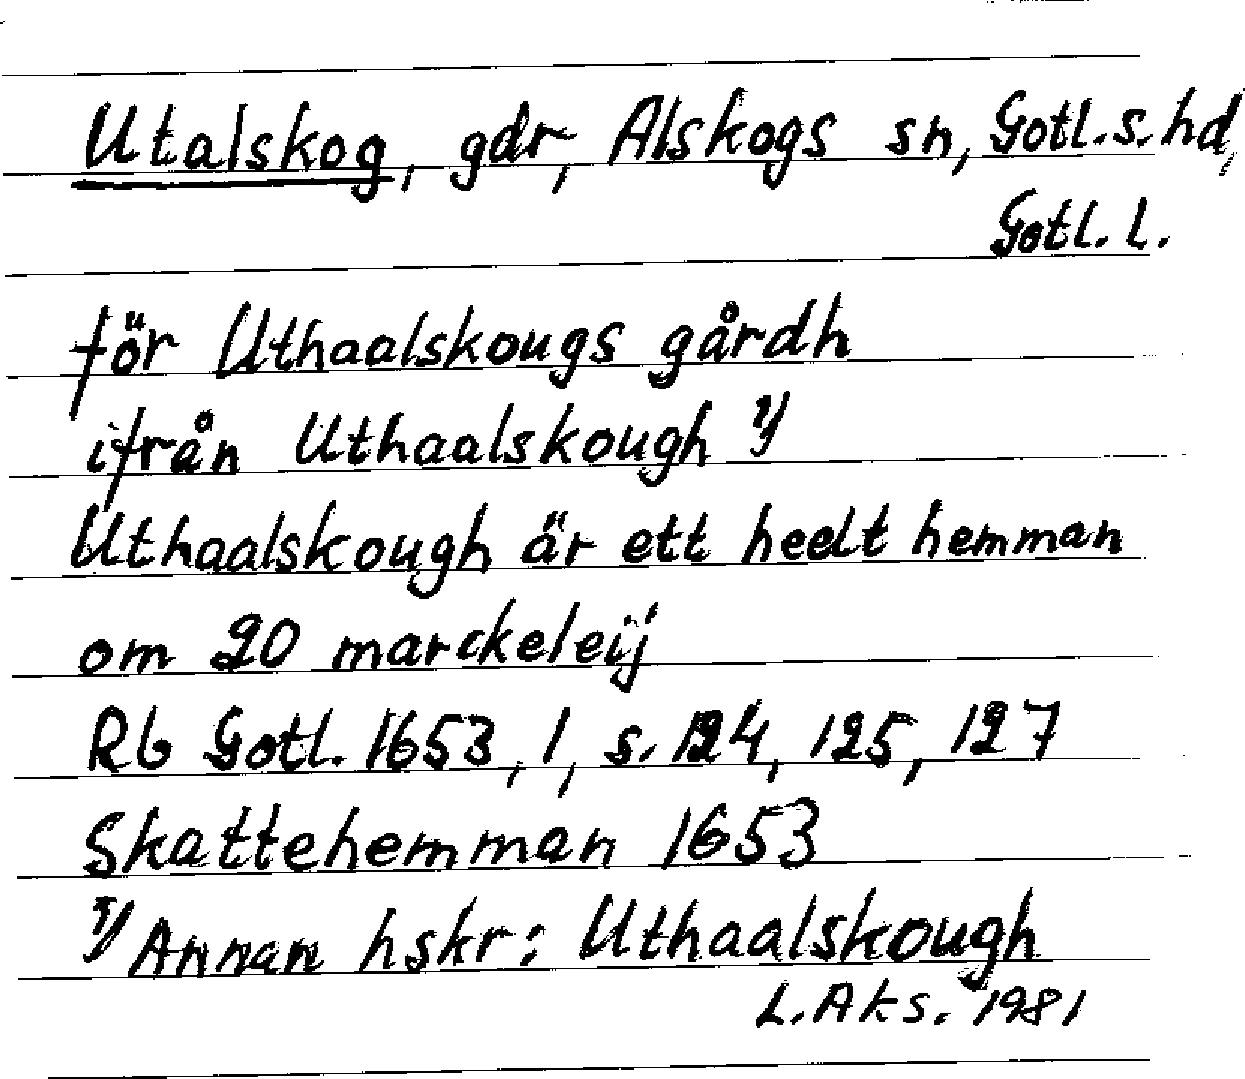 Utalskog, gdr, Alskogs sn, Gotl. s. hd,
Gotl. l.
för Uthaalskougs gårdh
ifrån Uthaalskough 1)
Uthaalskough är ett heelt hemman
om 20 marckeleij
Rb Gotl. 1653, 1, s. 124, 125, 127
Skattehemman 1653
1) Annan hskr: Uthaalskough
L. Aks. 1981